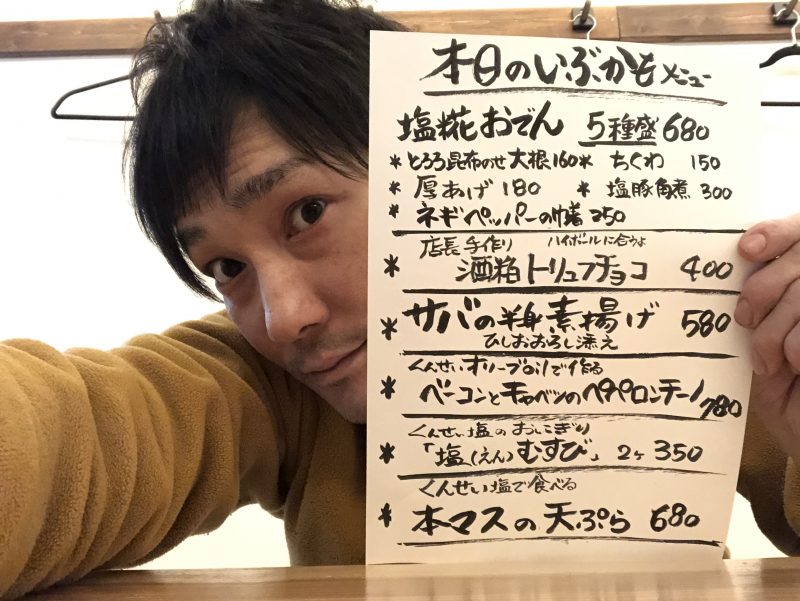 本日のいぶかもメニュー
塩糀おでん 5種盛 680
* とろろ昆布のせ大根 160 * ちくわ 150
* 厚あげ 180 * 塩豚角煮 300
* ネギペッパーの 250
店長手作り ハイボールに合うよ
* 酒粕トリュフチョコ 400
* サバの半身素揚げ 580
ひしおおろし添え
くんせいオリーブoilで作る
* ベーコンとキャベツのペペロンチーノ 780
くんせい塩のおにぎり
* 「塩(えん)むすび」 2ヶ 350
くんせい塩で食べる
* 本マスの天ぷら 680